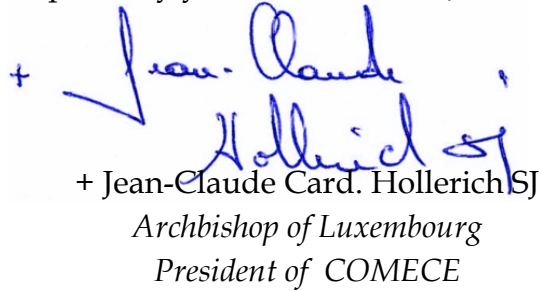 + Jean-Claude
Hollerich SJ
+ Jean-Claude Card. Hollerich SJ
Archbishop of Luxembourg
President of COMECE